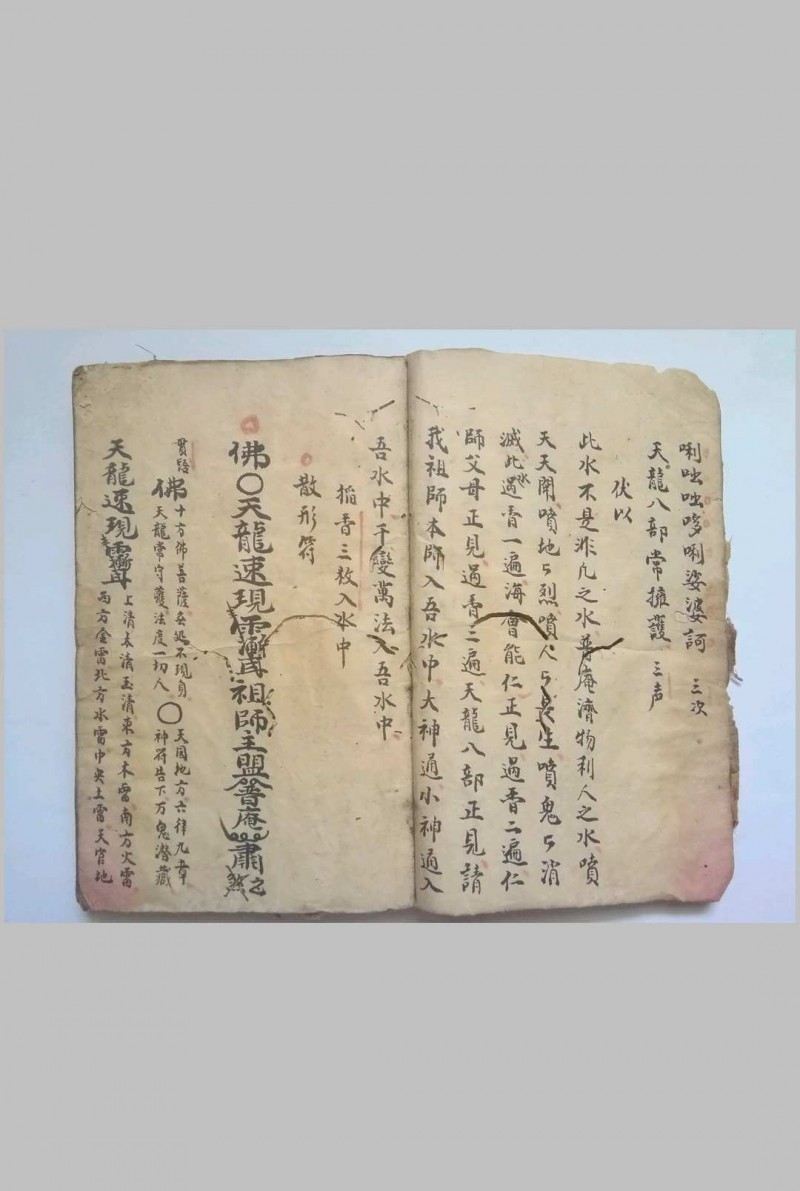 唎哆唎娑婆訶 三次
天龍八部常擁護 三声
伏以
此水不是非凡之水普庵濟物利人之水噴
天天開噴地〻烈噴人〻長生噴鬼〻消
滅此水過香一遍海會能仁正見過香二遍仁
師父母正見過香三遍天龍八部正見請
我祖師本師入吾水中大神通小神通入
吾水中千變萬法入吾水中
稲香三枚入水中
散形符
佛〇天龍速現祖師主盟普庵肅之煞
貫語
佛 十方佛菩薩 不現身
天龍常守護法度一切人 〇 天圓地方六律九章
神符告下万鬼潛藏
天龍速現 上清太清玉清東方木雷南方火雷
西方金雷北方水雷中央土雷天官地